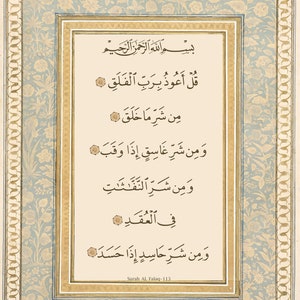 بِسْمِ ٱللَّهِ ٱلرَّحْمَٰنِ ٱلرَّحِيمِ
قُلْ أَعُوذُ بِرَبِّ ٱلْفَلَقِ
مِن شَرِّ مَا خَلَقَ
وَمِن شَرِّ غَاسِقٍ إِذَا وَقَبَ
وَمِن شَرِّ ٱلنَّفَّٰثَٰتِ
فِى ٱلْعُقَدِ
وَمِن شَرِّ حَاسِدٍ إِذَا حَسَدَ
Surah Al Falaq -113